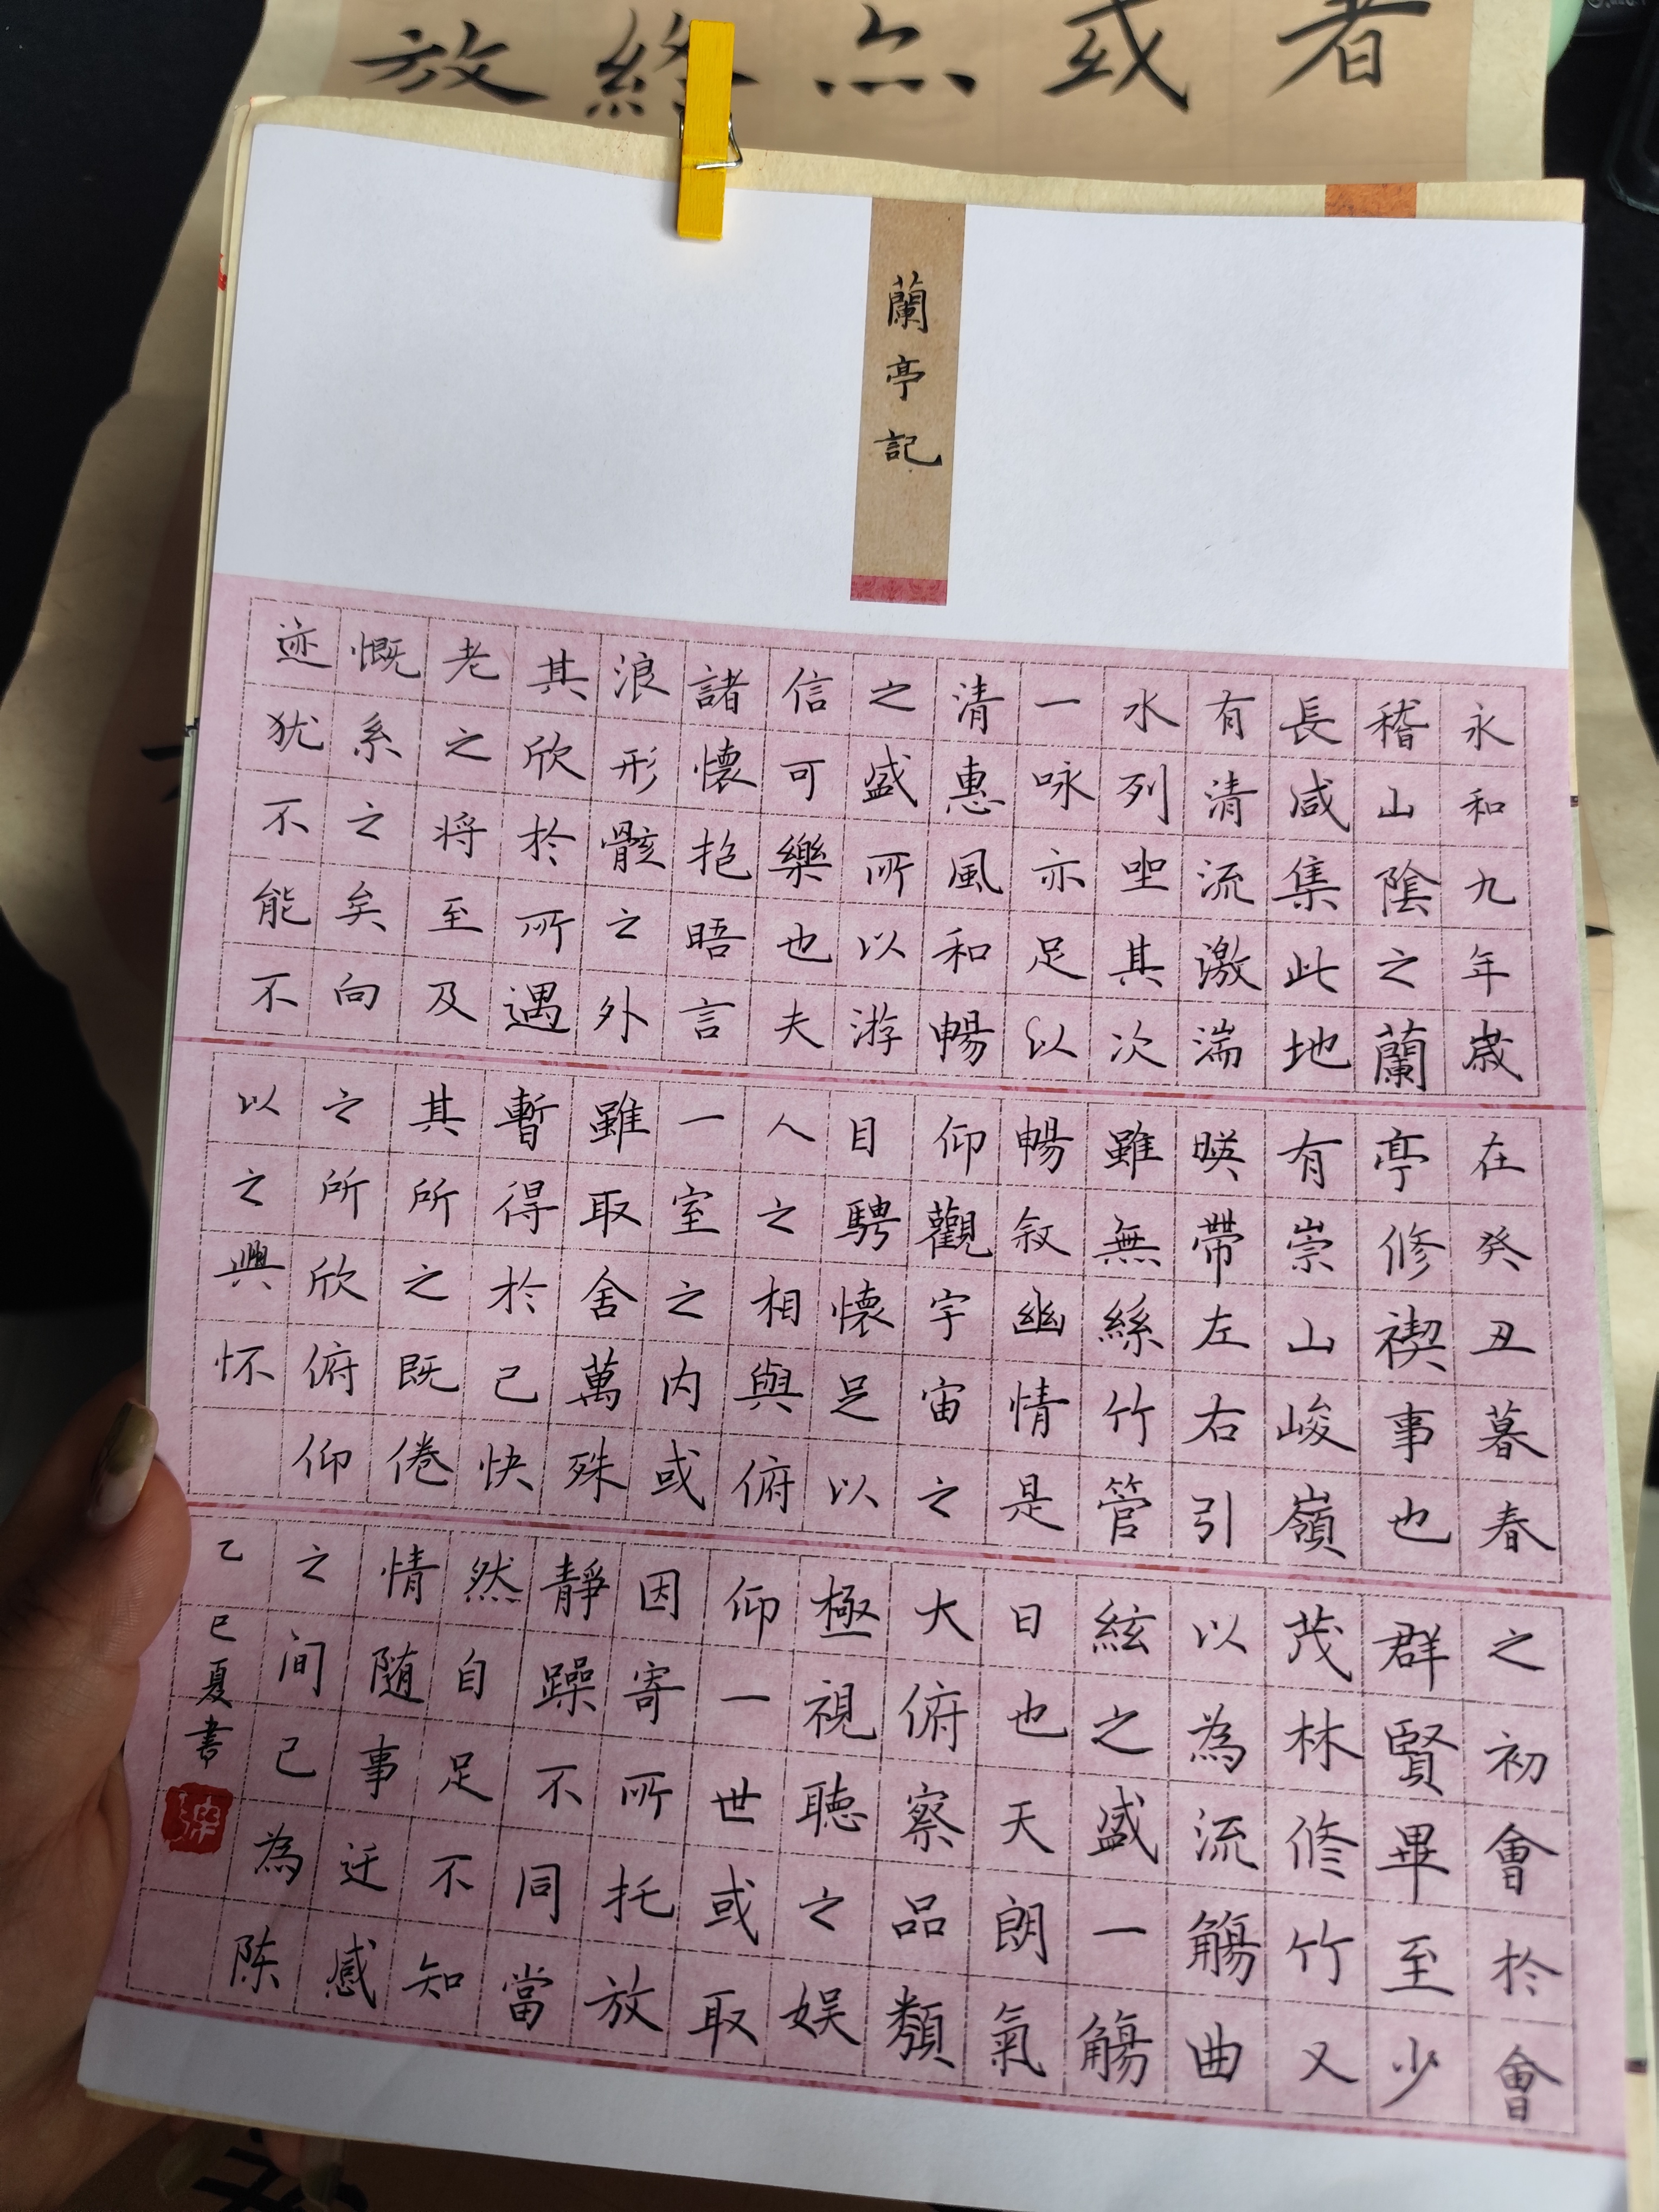 者
或
終
放
蘭亭記
永和九年歲在癸丑暮春之初會於會
稽山陰之蘭亭修禊事也群賢畢至少
長咸集此地有崇山峻嶺茂林修竹又
有清流激湍暎帶左右引以為流觴曲
水列坐其次雖無絲竹管絃之盛一觴
一咏亦足以暢叙幽情是日也天朗氣
清惠風和暢仰觀宇宙之大俯察品類
之盛所以游目騁懷足以極視聽之娱
信可樂也夫人之相與俯仰一世或取
諸懷抱晤言一室之内或因寄所托放
浪形骸之外雖取舍萬殊靜躁不同當
其欣於所遇暫得於己快然自足不知
老之将至及其所之既倦情随事迁感
慨系之矣向之所欣俯仰之间已為陈
迹犹不能不以之興怀
乙巳夏書